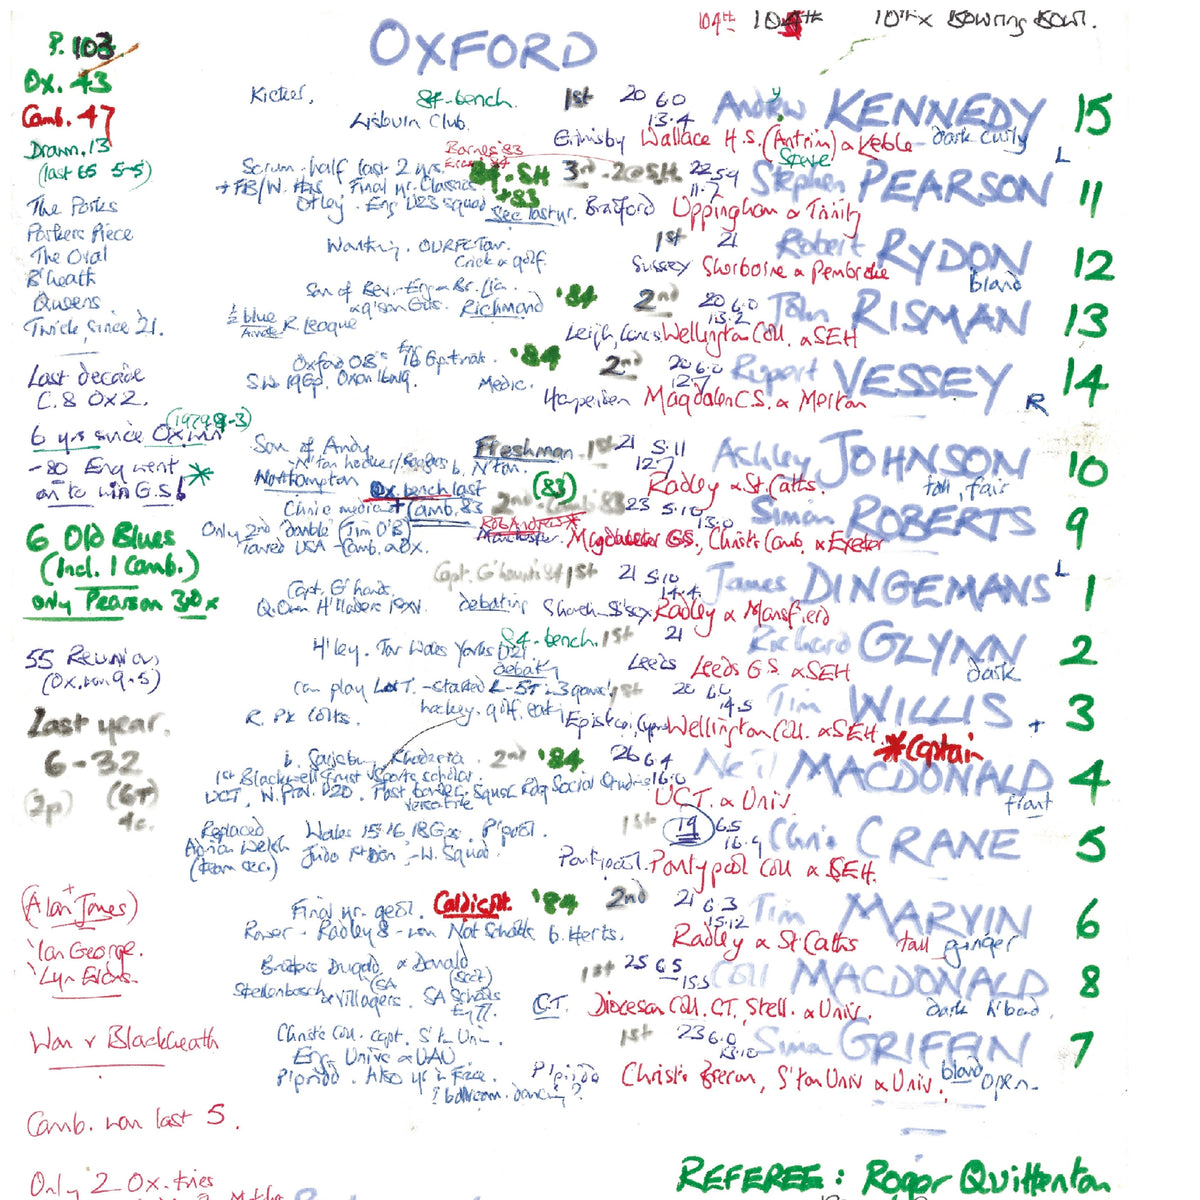 104th 104th 10th x Bowring Bowl.
OXFORD
P. 103
Ox. 43
Camb. 47
Drawn. 13
(last 65 5-5)
The Parks
Parkers Piece
The Oval
B'heath
Queens
Twick since 21.
Last decade
C. 8 Ox 2.
6 yrs since Ox. win
(1979 9-3)
-80 Eng went
on to win G.S!
6 Old Blues
(Incl. 1 Camb.)
only Pearson 3.0 x
55 Reunion
(Ox. won 9-5)
Last year.
6-32
(2p) (6T)
4c.
(Alan James)
Ian George.
Lyn Evans.
War v Blackheath
Camb. won last 5.
Only 2 Ox. tries
Kicker. 84-bench. 1st 20 6.0 Andrew KENNEDY 15
Lisburn Club. 13.4
Grimsby Wallace H.S. (Antrim) & Keble dark curly
Barnes '83
Scrum-half last 2 yrs. 84-SH 3rd-2@SH 22 5.9 Stephen PEARSON 11 L
+ FB/W. Final yr. Classics +83 11.7
Otley. Eng U23 squad See last yr. Bradford Uppingham & Trinity
1st 21 Robert RYDON 12
OURFC Tar.
Crick & golf. Sussex Sherborne & Pembroke bland
Son of Bev.-Eng & Br. Lia. '84 2nd 20 6.0 John RISMAN 13
Richmond 13.2
1/2 blue R. League Leigh, Lancs Wellington Coll. & SEH
Oxford OB's 16 Gp. trial. '84 2nd 20 6.0 Rupert VESSEY 14
S.W. 19 Gp. Oxon Medic. 12.7
Harpenden Magdalen C.S. & Merton R
Son of Andy Freshman. 1st 21 5.11 Ashley JOHNSON 10
N'ton hooker b. N'ton. 12.7
Northampton Radley & St Catts. tall, fair
Ox. bench last (83) 2nd Camb 83 23 5.10 Simon ROBERTS 9
Clinic medical + Camb. 83 13.0
Only 2nd 'double' (Tim O'B) Rob Andrew* Manchester. G.S., Christs Camb. & Exeter
Toured USA - Camb. & Ox.
Capt. G'hounds 84 1st 21 5.10 James DINGEMANS 1 L
Capt. G'hound. 14.4
debating Radley & Mansfield
84-bench. 1st 21 Richard GLYNN 2
Yorks U21
debating Leeds Leeds G.S. & SEH dark
Can play - started 1st 20 6.0 Tim WILLIS 3
R. Pk Colts. hockey. golf. 14.5
Episkopi, Cyprus Wellington Coll. & SEH.
*Captain
b. Salisbury Rhodesia 2nd '84 26 6.4 Neil MACDONALD 4
1st Blackwell Trust Sports scholar. 16.0
UCT, N. Trv. U20. Social Studies
versatile UCT. & Univ front
Replaced Wales 15 16 18 Gps. P'pool. 1st 19 6.5 Chris CRANE 5
Adrian Welsh Judo - W. Squad. 16.9
(team sec.) Pontypool. Pontypool Coll & SEH.
Final yr. geol. Caldicott. '84 2nd 21 6.3 Tim MARVIN 6
15.12
Rower - Radley 8 - won Nat Schools b. Herts. Radley & St Catts tall ginger
Brothers Dugald & Donald 1st 25 6.5 Coll MACDONALD 8
(SA (Scot) 15.5
Stellenbosch & Villagers. SA Schools
C.T. Diocesan Coll. C.T, Stell. & Univ. dark h'band.
Christ Coll. capt. S'ton Uni. 1st 23 6.0 Simon GRIFFIN 7
Eng. Univs & UAU. 13.10
P'pridd. Also yr in France. P'pridd Christ Brecon, S'ton Univ & Univ. bland open.
? ballroom dancing?
REFEREE: Roger Quittenton